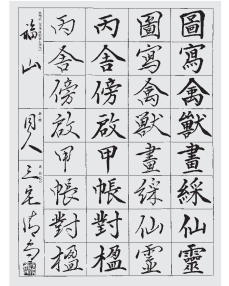 圖寫禽獸畫綵仙靈
圖寫禽獸畫綵仙靈
丙舍傍啟甲帳對楹
丙舍傍啟甲帳對楹
福山
同人 三宅